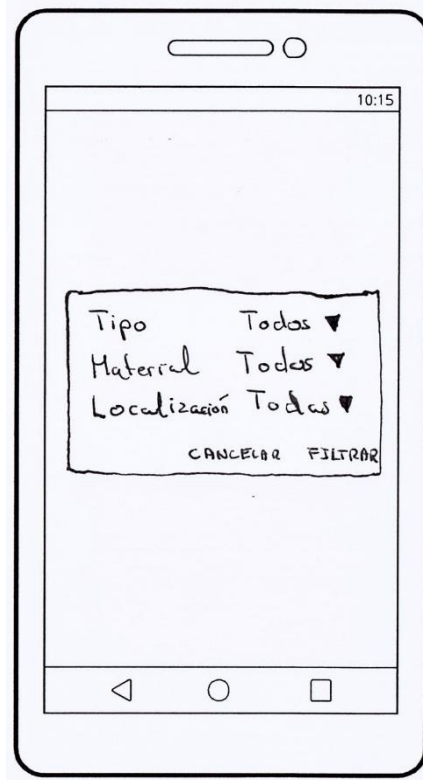 10:15
Tipo Todos ▼
Material Todos ▼
Localización Todas ▼
CANCELAR FILTRAR